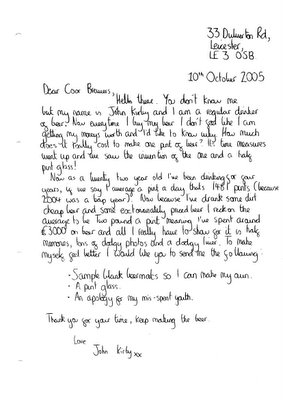 33 Dulverton Rd,
Leicester,
LE3 0SB
10th October 2005
Dear Coor Brewers,
Hello there. You don't know me
but my name is John Kirby and I am a regular drinker
of beer. Now everytime I buy my beer I don't feel like I am
getting my moneys worth and I'd like to know why. How much
does it really cost to make one pint of beer? It's time measures
went up and we saw the invention of the one and a half
pint glass!
Now as a twenty two year old I've been drinking for four
years, if we say I average a pint a day that's 1461 pints (because
2004 was a leap year). Now because I've drank some dirt
cheap beer and some extortionately priced beer I reckon the
average to be two pound a pint meaning I've spent around
£3000 on beer and all I really have to show for it is half
memories, tons of dodgy photos and a dodgy liver. To make
myself feel better I would like you to send me the following:
· Sample blank beermats so I can make my own.
· A pint glass.
· An apology for my mis-spent youth.
Thank you for your time, keep making the beer.
Love
John Kirby xx